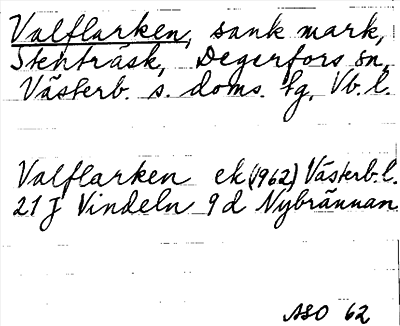 Valflarken, sank mark,
Stenträsk, Degerfors sn,
Västerb. s. doms. tg, Vb. l.
Valflarken ek (1962) Västerb. l.
21 J Vindeln 9 d Nybrännan
ASO 62